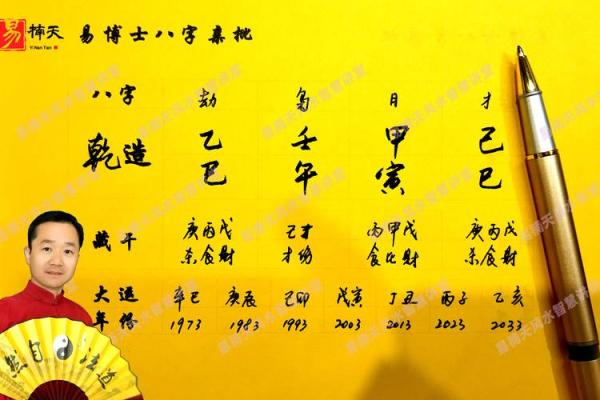 易 楠天 易博士八字亲批
Yi Nan Tian
八字 劫 枭 日 才
乾造 乙 壬 甲 己
巳 午 寅 巳
藏干 庚丙戊 己丁 丙甲戊 庚丙戊
杀食财 才伤 食比财 杀食财
大运 辛巳 庚辰 己卯 戊寅 丁丑 丙子 乙亥
年份 1973 1983 1993 2003 2013 2023 2033
然自 法道
易楠天风水智慧讲堂